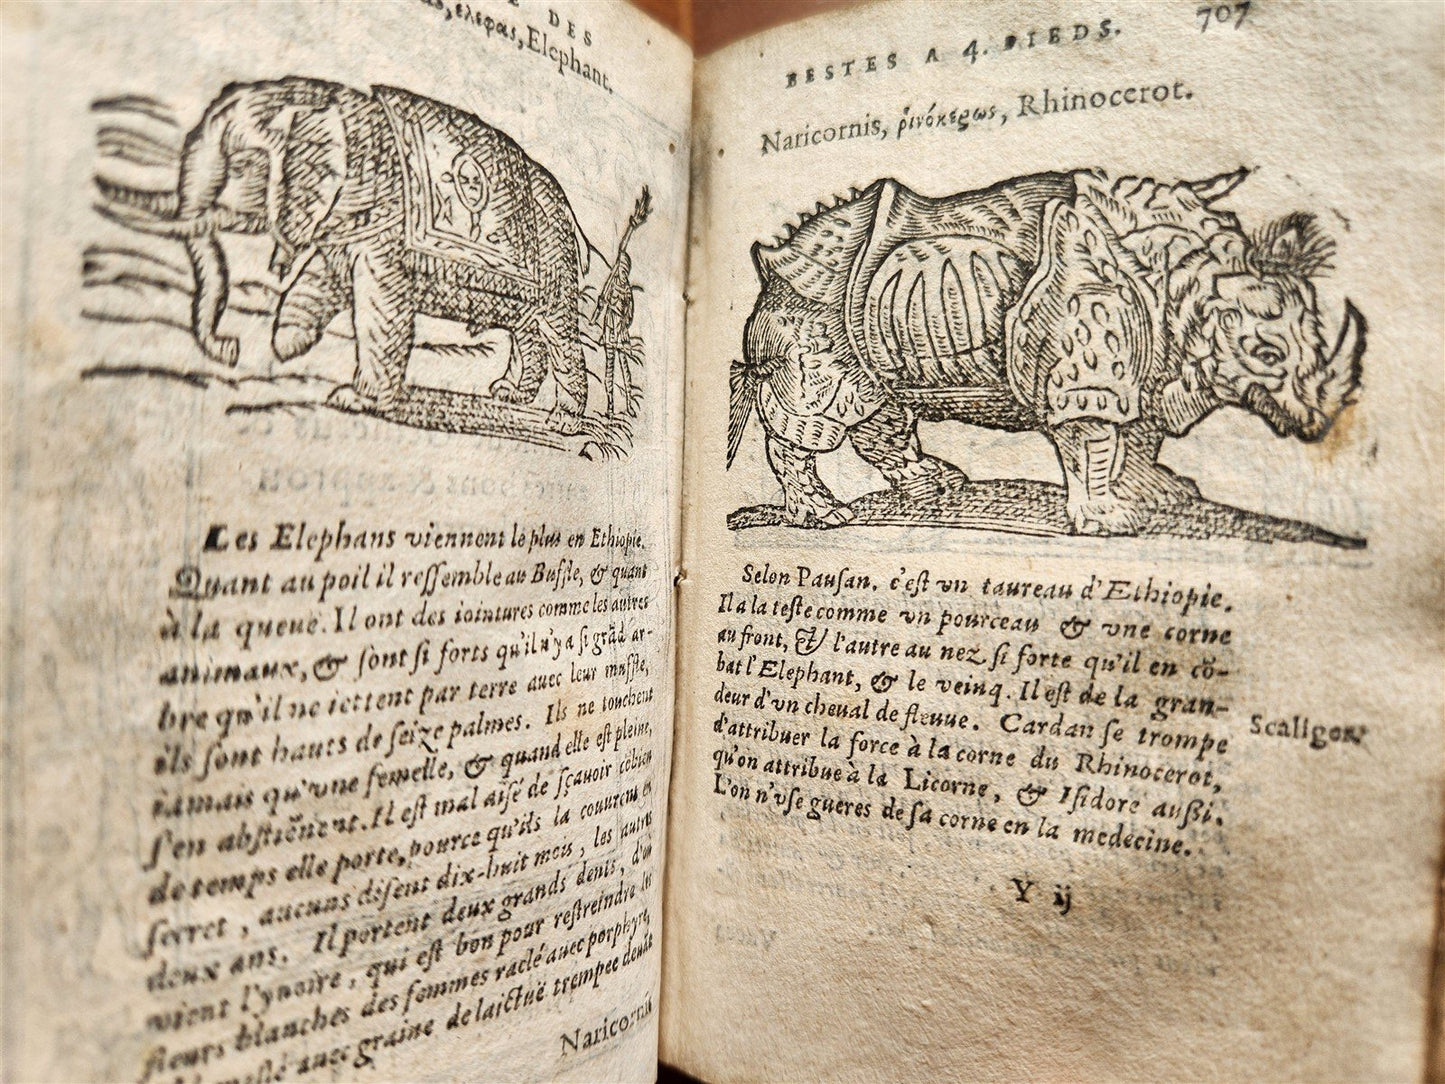 E DES
ελεφας, Elephant.
Les Elephans viennent le plus en Ethiopie.
Quant au poil il reſſemble au Buffle, & quant
à la queuë. Il ont des iointures comme les autres
animaux, & ſont ſi forts qu'il n'y a ſi grãd ar-
bre qu'il ne iettent par terre auec leur muffle,
ils ſont hauts de ſeize palmes. Ils ne touchent
iamais qu'vne femelle, & quand elle eſt pleine,
s'en abſtiẽnent. Il eſt mal aiſé de ſçauoir cõbien
de temps elle porte, pource qu'ils la couurent en
ſecret, aucuns diſent dix-huit mois, les autres
deux ans. Il portent deux grands dents, d'où
vient l'yuoire, qui eſt bon pour reſtreindre les
fleurs blanches des femmes raclé auec porphyre,
meſlé auec graine de laictuë trempee deuãt
Naricornis
BESTES A 4. PIEDS. 707
Naricornis, ῥινόκερως, Rhinocerot.
Selon Pauſan. c'eſt vn taureau d'Ethiopie.
Il a la teſte comme vn pourceau & vne corne
au front, & l'autre au nez ſi forte qu'il en cõ-
bat l'Elephant, & le veinq. Il eſt de la gran-
deur d'vn cheual de fleuue. Cardan ſe trompe
d'attribuer la force à la corne du Rhinocerot,
qu'on attribue à la Licorne, & Iſidore auſſi.
L'on n'vſe gueres de ſa corne en la medecine.
Scaliger.
Y ij